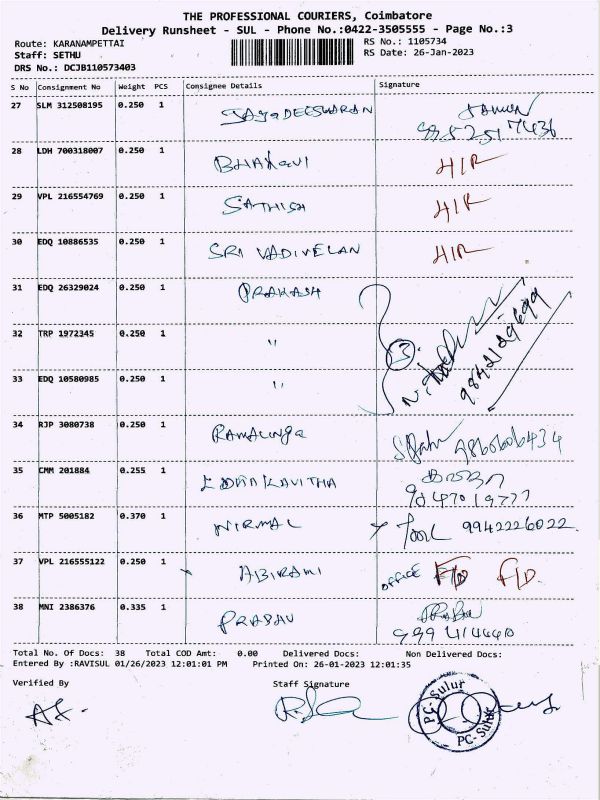 THE PROFESSIONAL COURIERS, Coimbatore
Delivery Runsheet - SUL - Phone No.:0422-3505555 - Page No.:3
Route: KARANAMPETTAI RS No.: 1105734
Staff: SETHU RS Date: 26-Jan-2023
DRS No.: DCJB110573403
S No Consignment No Weight PCS Consignee Details Signature
27 SLM 312508195 0.250 1 JAYADEESWARAN
28 LDH 700318007 0.250 1 BHARAVI H/R
29 VPL 216554769 0.250 1 SATHISH H/R
30 EDQ 10886535 0.250 1 SRI VADIVELAN H/R
31 EDQ 26329024 0.250 1 PRAKASH
32 TRP 1972345 0.250 1 " 3
33 EDQ 10580985 0.250 1 "
9842129699
34 RJP 3080738 0.250 1 RAMALINGA 9860606434
35 CMM 201884 0.255 1 KAVITHA
36 MTP 5005182 0.370 1 NIRMAL 9942226022
37 VPL 216555122 0.250 1 ABIRAMI OFFICE F/D F/D.
38 MNI 2386376 0.335 1 PRASAV
Total No. Of Docs: 38 Total COD Amt: 0.00 Delivered Docs: Non Delivered Docs:
Entered By :RAVISUL 01/26/2023 12:01:01 PM Printed On: 26-01-2023 12:01:35
Verified By Staff Signature
PC-Sulur
PC-Sulur